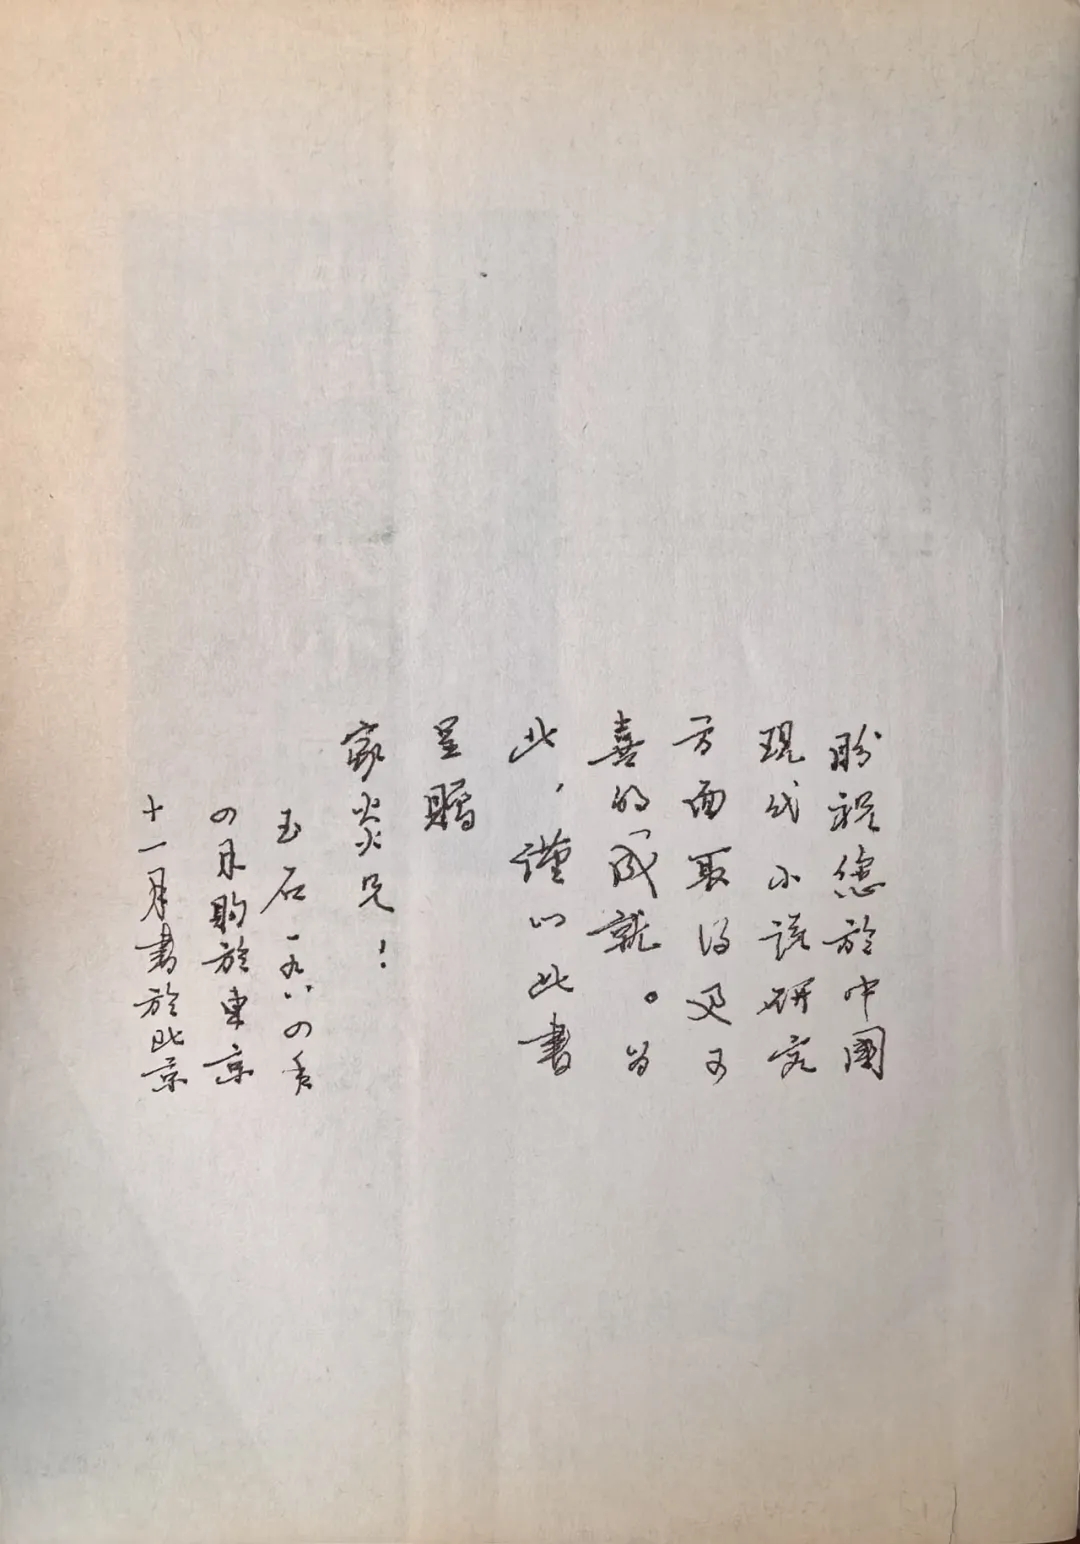 盼祝您於中國
現代小説研究
方面取得更可
喜的成就。为
此，謹以此書
呈贈
家炎兄！
玉石一九八四年
四月購於東京
十一月書於北京